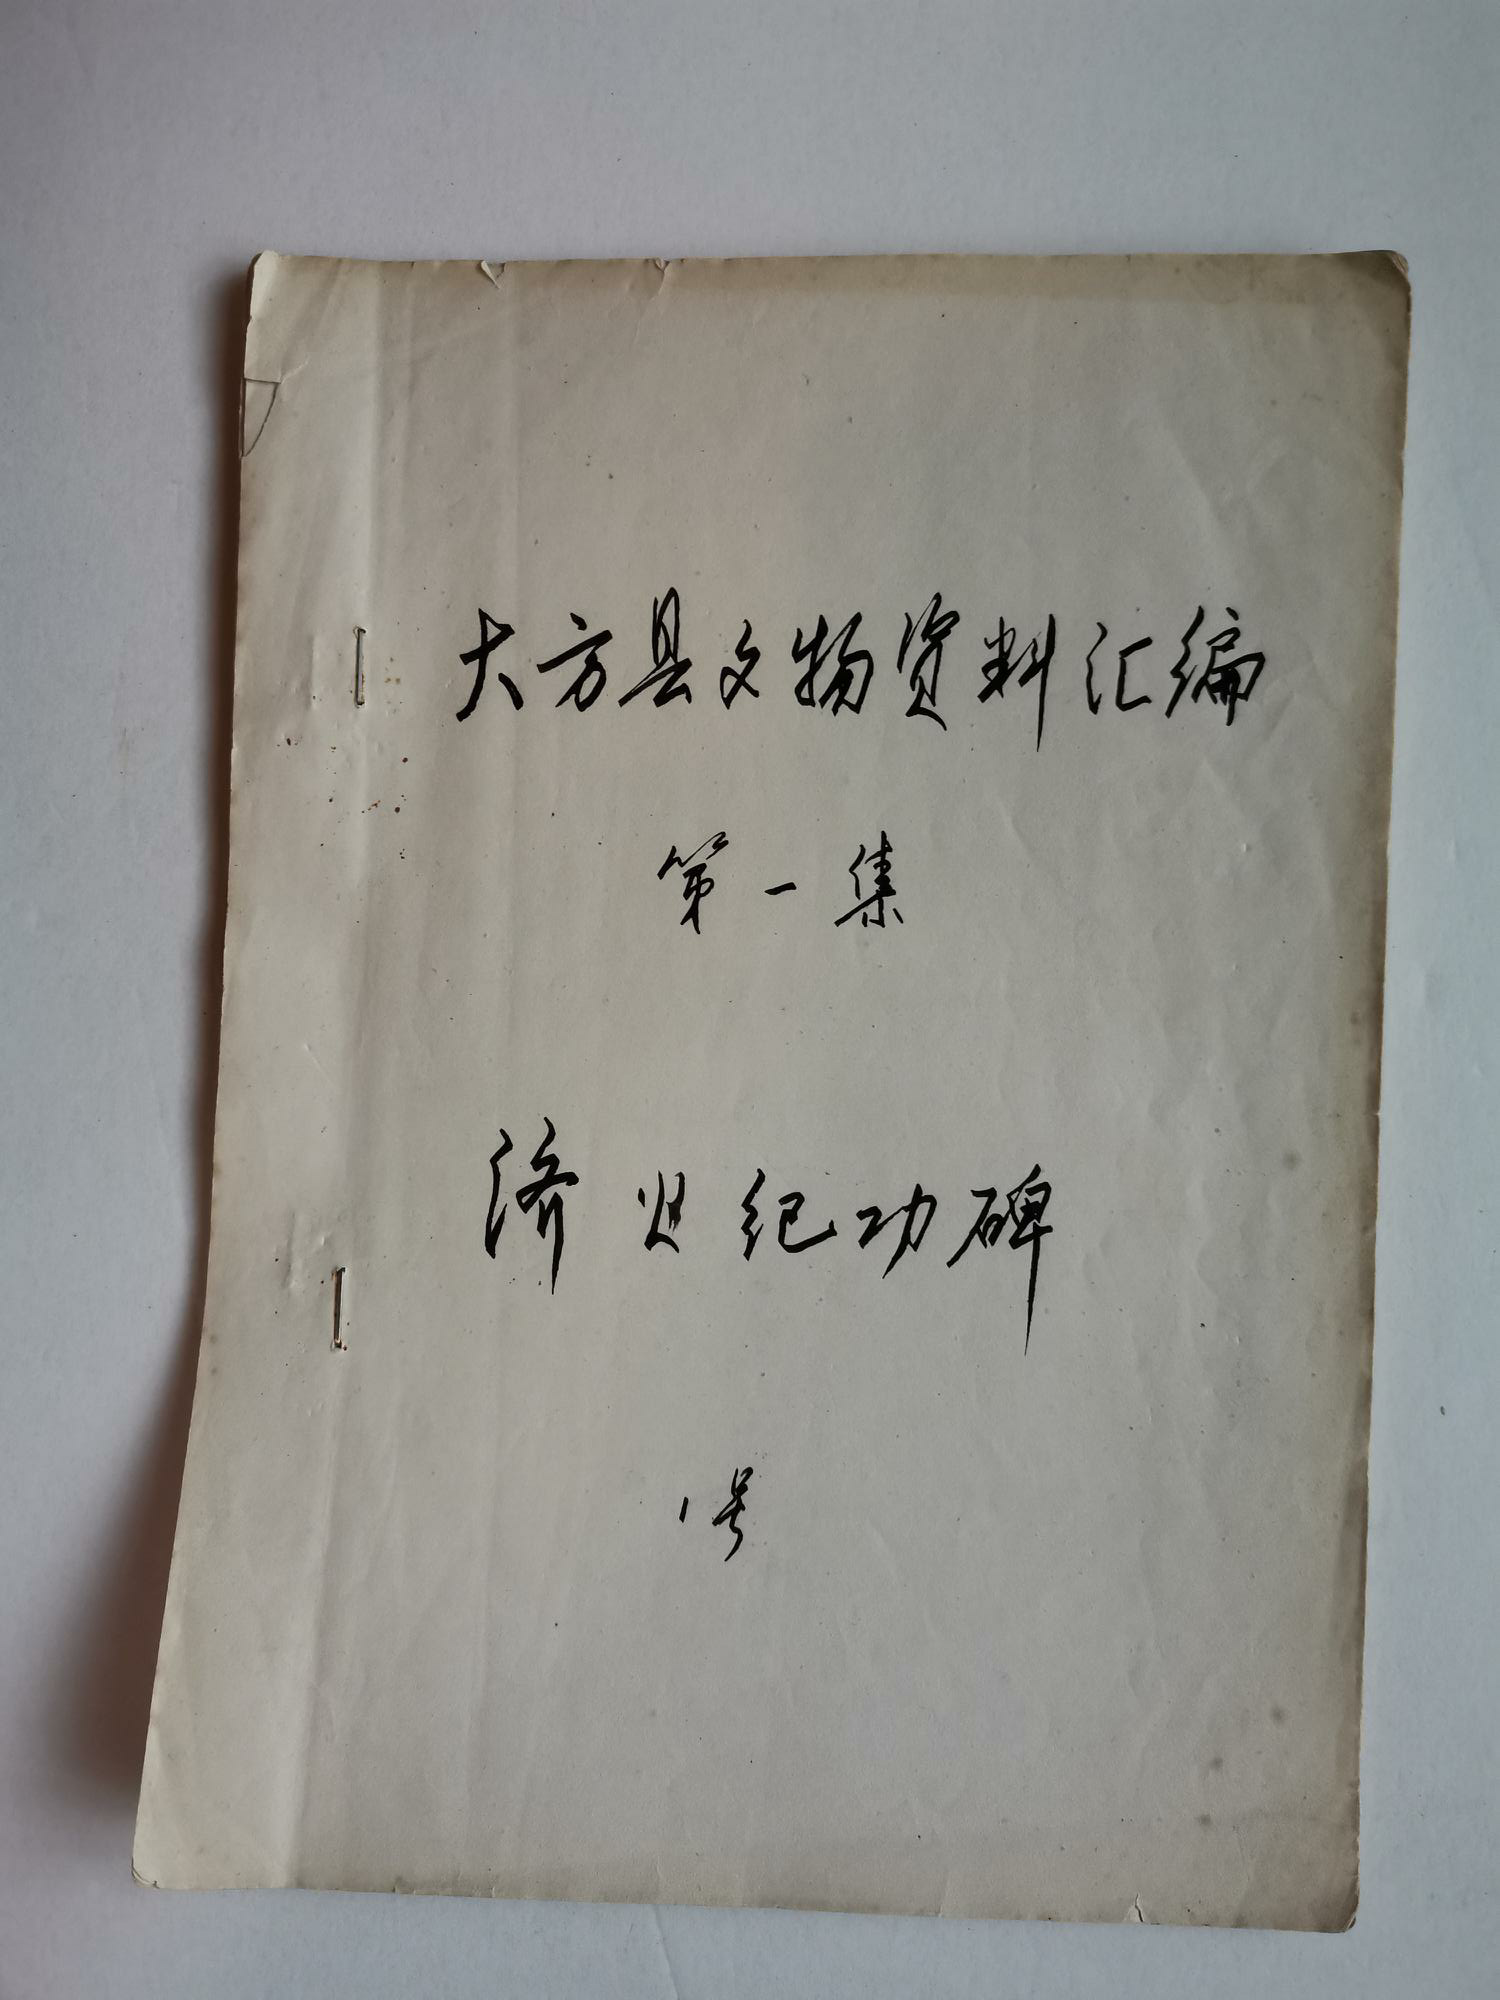 大方县文物资料汇编
第一集
济火纪功碑
1号